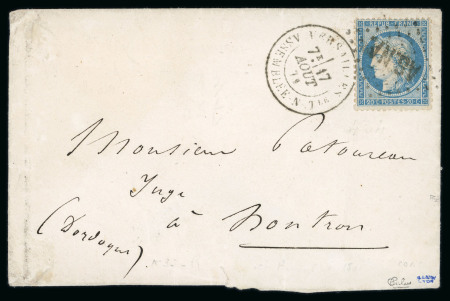 VERSAILLES
ASSEMBLEE N
7E
17
AOUT
REPUB. FRANC.
20 C. POSTES 20 C.
Monsieur Patoureau
Juge
à Nontron
(Dordogne)